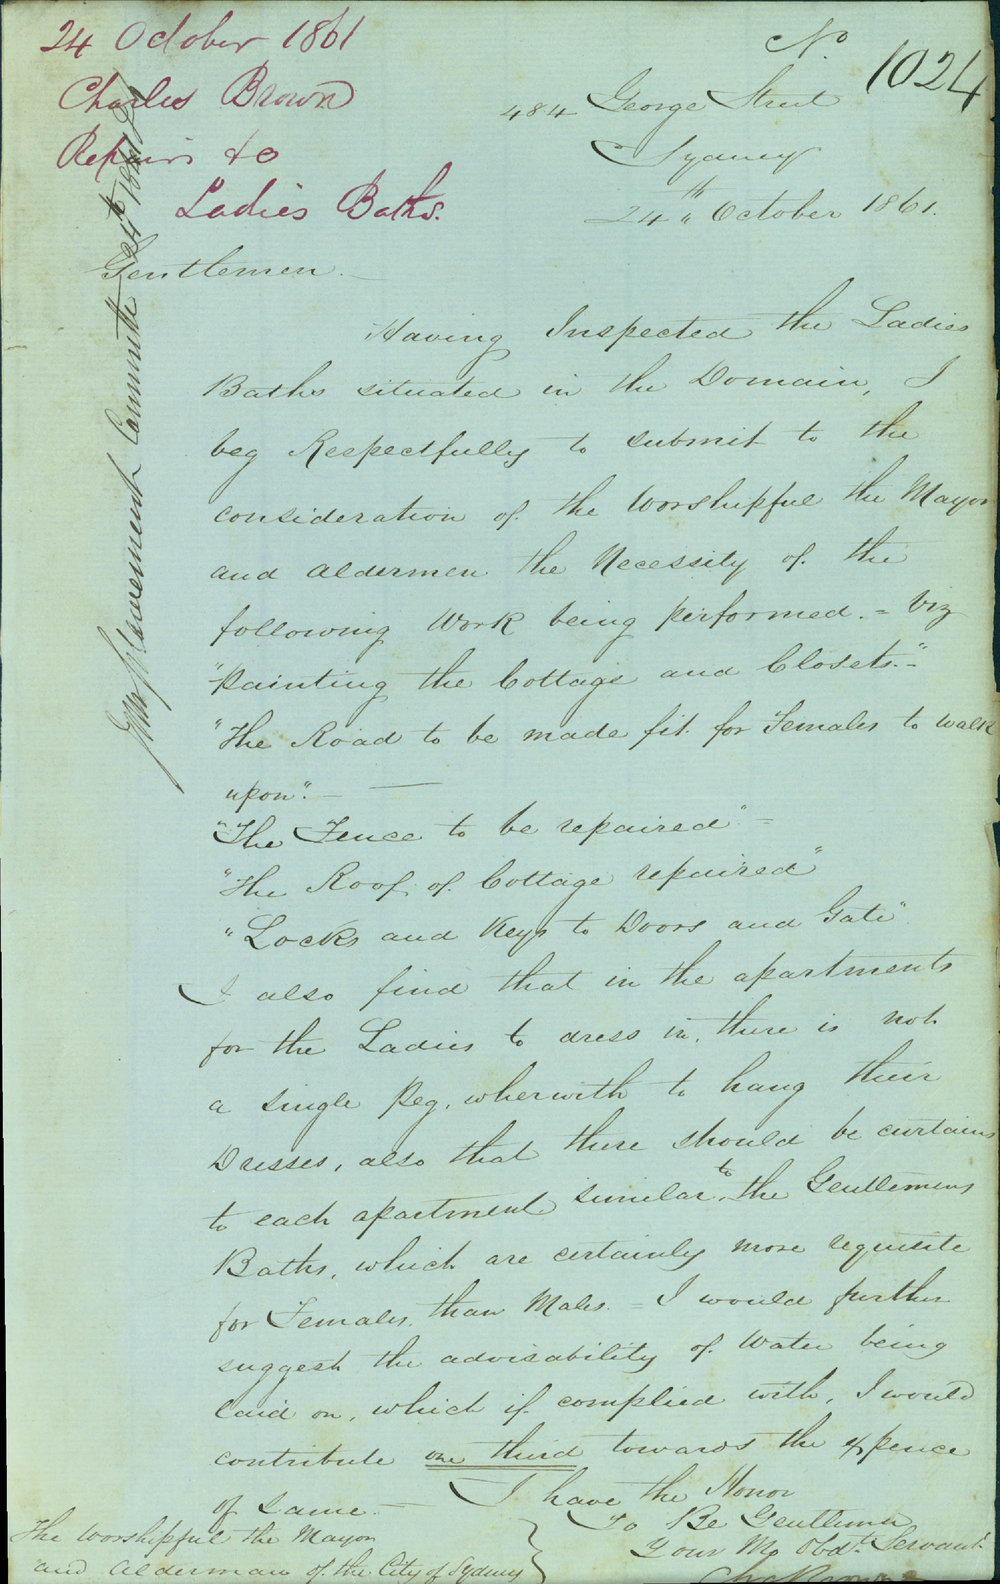 24 October 1861
Charles Brown
Repairs to
Ladies Baths.
No 1024
484 George Street
Sydney
24th October 1861.
Improvement Committee 24th
Gentlemen.—
Having Inspected the Ladies
Baths situated in the Domain, I
beg Respectfully to submit to the
consideration of the Worshipful the Mayor
and Aldermen the Necessity of the
following Work being performed. = Viz
"Painting the Cottage and Closets."
"The Road to be made fit for Females to walk
upon". —
"The Fence to be repaired" =
"The Roof of Cottage repaired"
"Locks and Keys to Doors and Gate"
I also find that in the apartments
for the Ladies to dress in, there is not
a single Peg, wherwith to hang their
Dresses, also that there should be curtains
to each apartment similar to the Gentlemens
Baths, which are certainly more requisite
for Females, than Males. = I would further
suggest the advisability of Water being
laid on, which if complied with, I would
contribute one third towards the expence
of Same. —
I have the Honor
To Be Gentlemen
Your Mo Obdt. Servant
Chas Brown
The Worshipful the Mayor
and Alderman of the City of Sydney